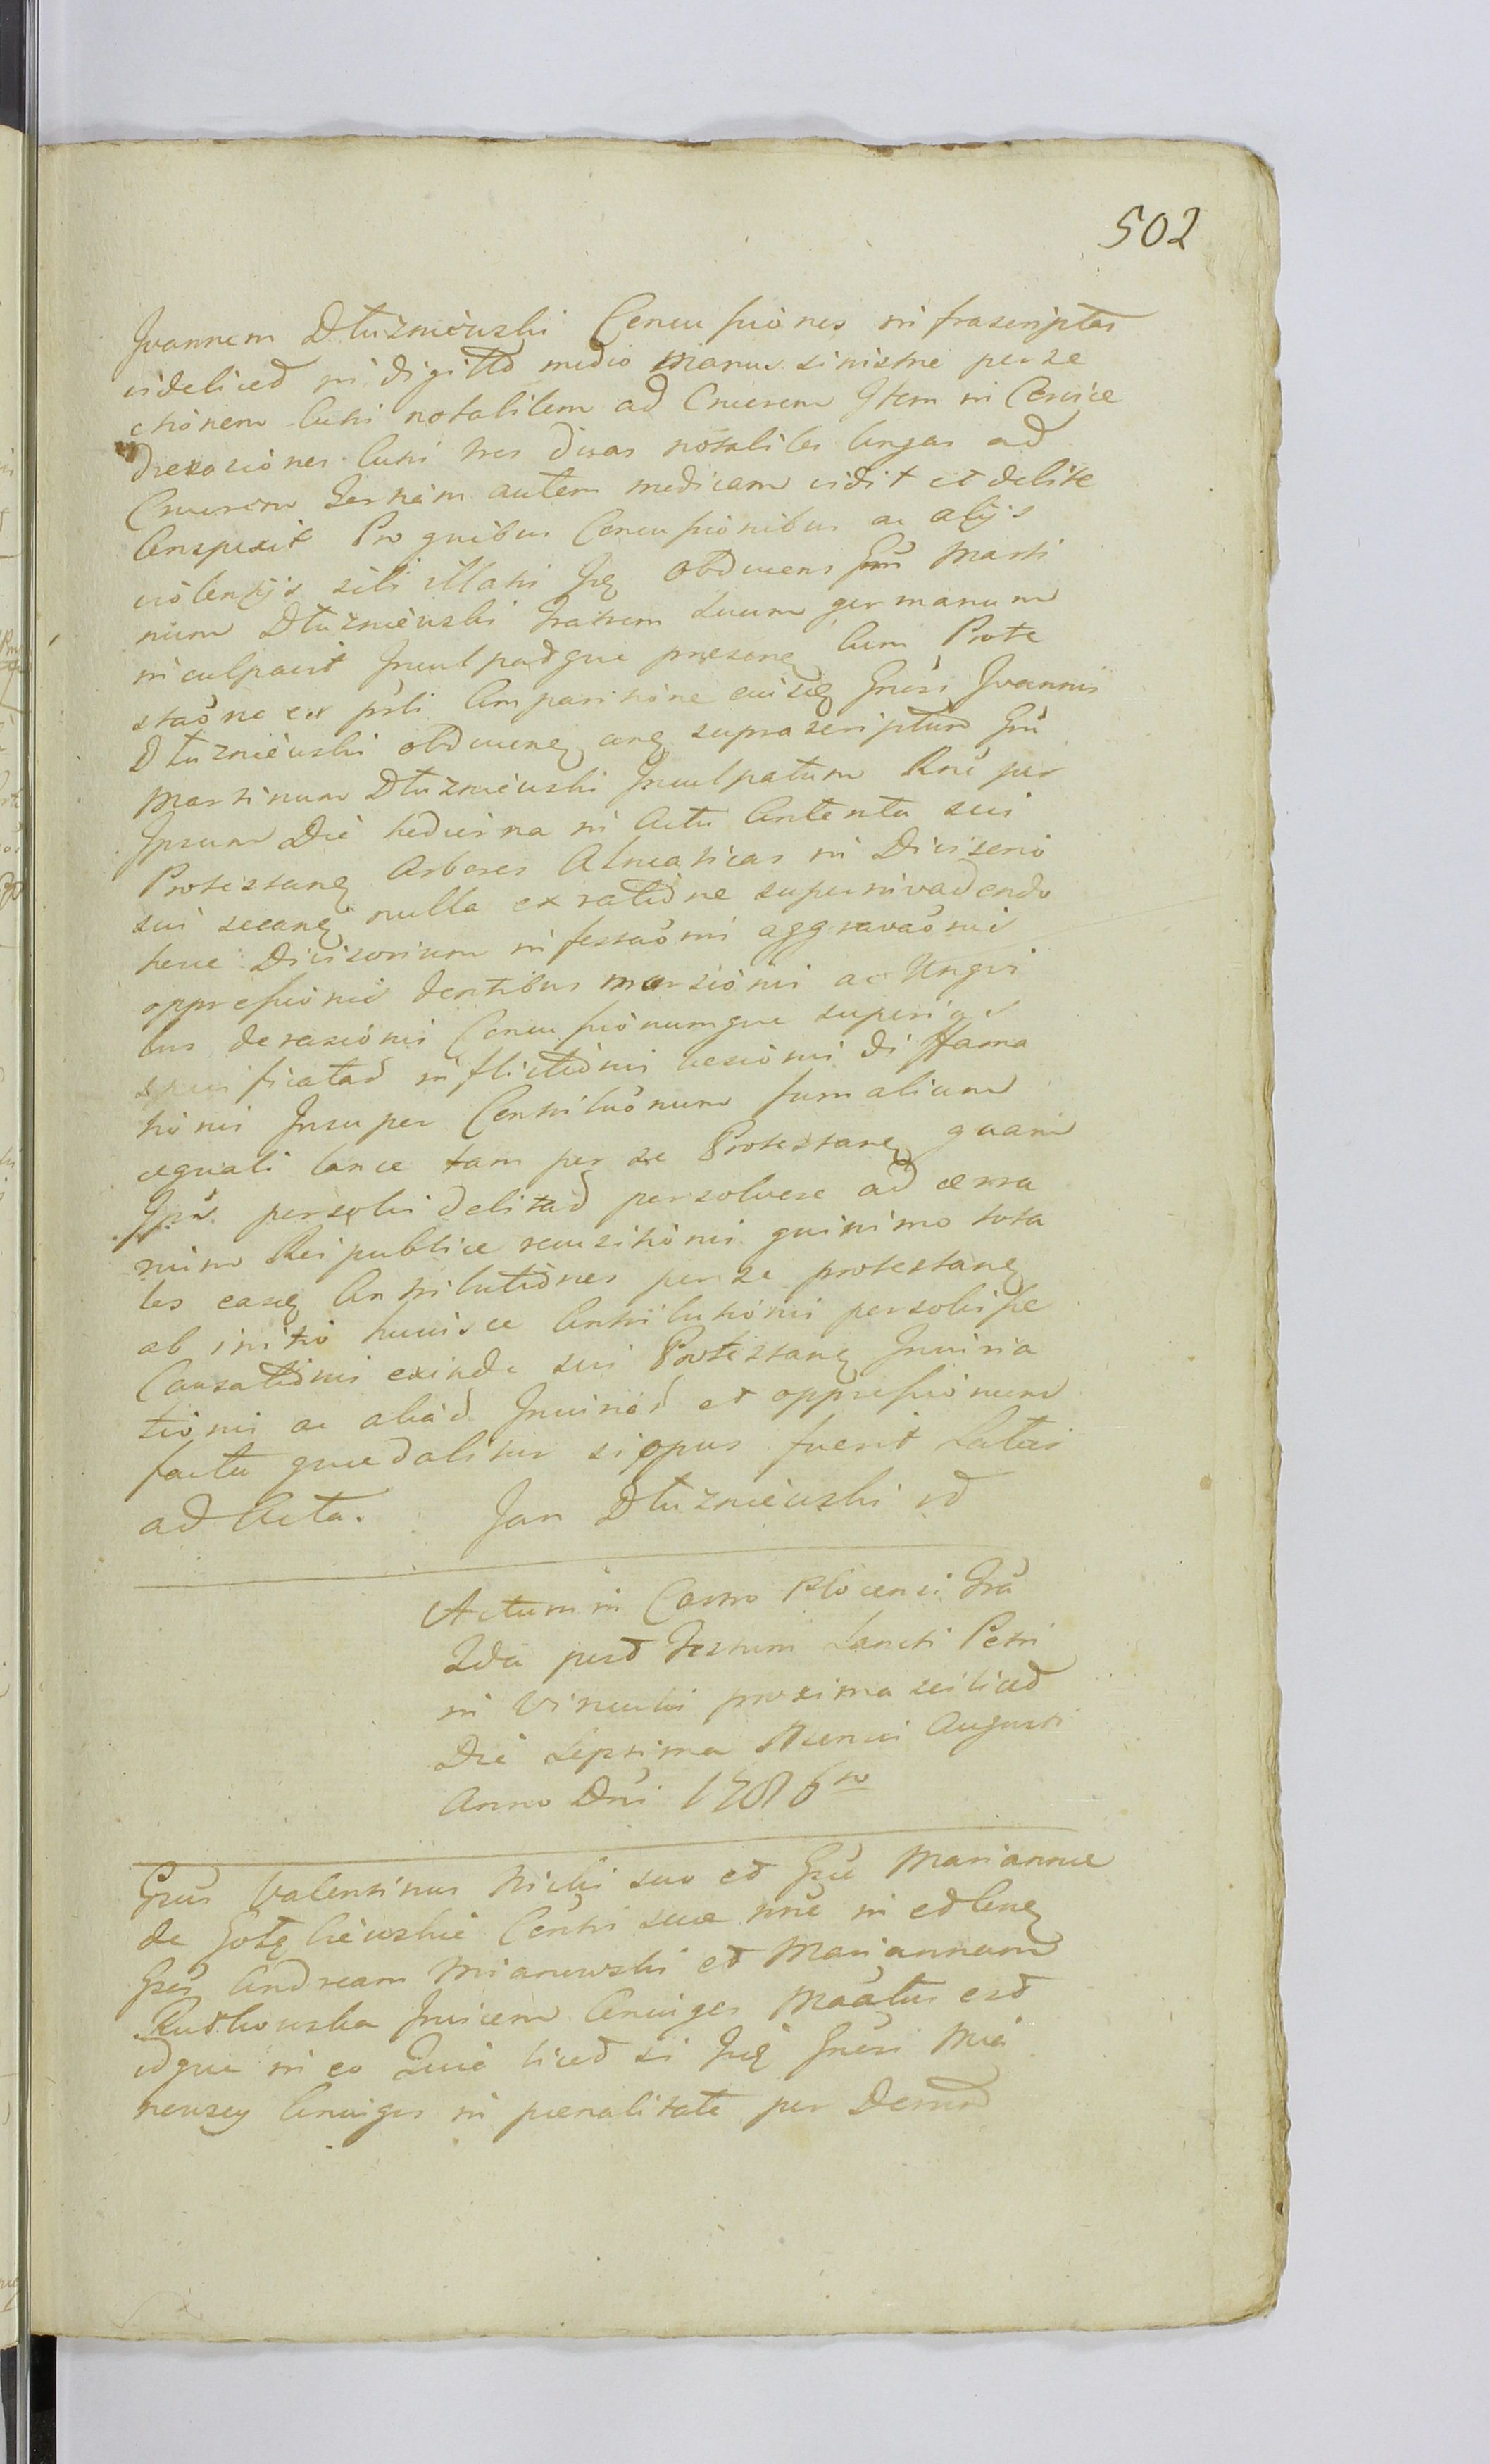 502
Joannem Dłuzniewski Concussiones infrascriptas
videliced in digitto medio manus sinistrae perze
ctionem cutis notabilem ad Cruorem Item in Cervice
derasiones cutis tres duas notabiles longas ad
Cruorem tertiam autem medicam vidit et debite
Conspexit Pro quibus Concussionibus ac alijs
violentijs sibi illatis Idq obducens Gnu Marti
num Dłuzniewski Fratrem Suum germanum
inculpavit Inculpadque praesenq cum Prote
stãone ex psti Comparitione eiusdq Gnosi Joannis
Dłuzniewski obducenq anq suprascriptum Gnu
Martinum Dłuzniewski Inculpatum Rnê per
Ipsum Diê hedierna in Actu Contentu sui
Protestanq Arbores Alneaticas in Divisorio
sui secanq nulla ex ratione superinvadendo
hecce Divisorium infestãonis aggravãonis
oppressionis dentibus morsionis ac Ungvi
bus derasionis Concussionumque superius
specificatad inflictionis laesionis diffama
tionis Insuper Contributionum fumalium
aequali lance tam per se Protestanq quam
Ips persolvi debitad persolvere ad aerra
rium Reipublice recusitionis quinimo tota
les easdq Contributiones per se protestanq
ab initio huiusce Contributionis persolvisse
Causationis exinde sui Protestanq Iniuria
tionis ac aliad Iniuriad et oppressionum
factu quaedalitur si opus fuerit Latius
ad Acta. Jan Dłuzniewski id
Actum in Castro Plocensi Fra
2da post Festum Sancti Petri
in Vinculis proxima sciliced
Die Septima Mensis Augusti
Anno Dni 1786to
Gnus Valentinus Kicki suo et Gnê Mariannae
de Consi suae nnê in edlenq
Gnos Andream Mianowski et Mariannam
Rudkowska Invicem Coniuges Maãtus esd
idque in eo Quiê liced si Iidq Gnosi Mia
newscy Coniuges in paenalitate per Decred